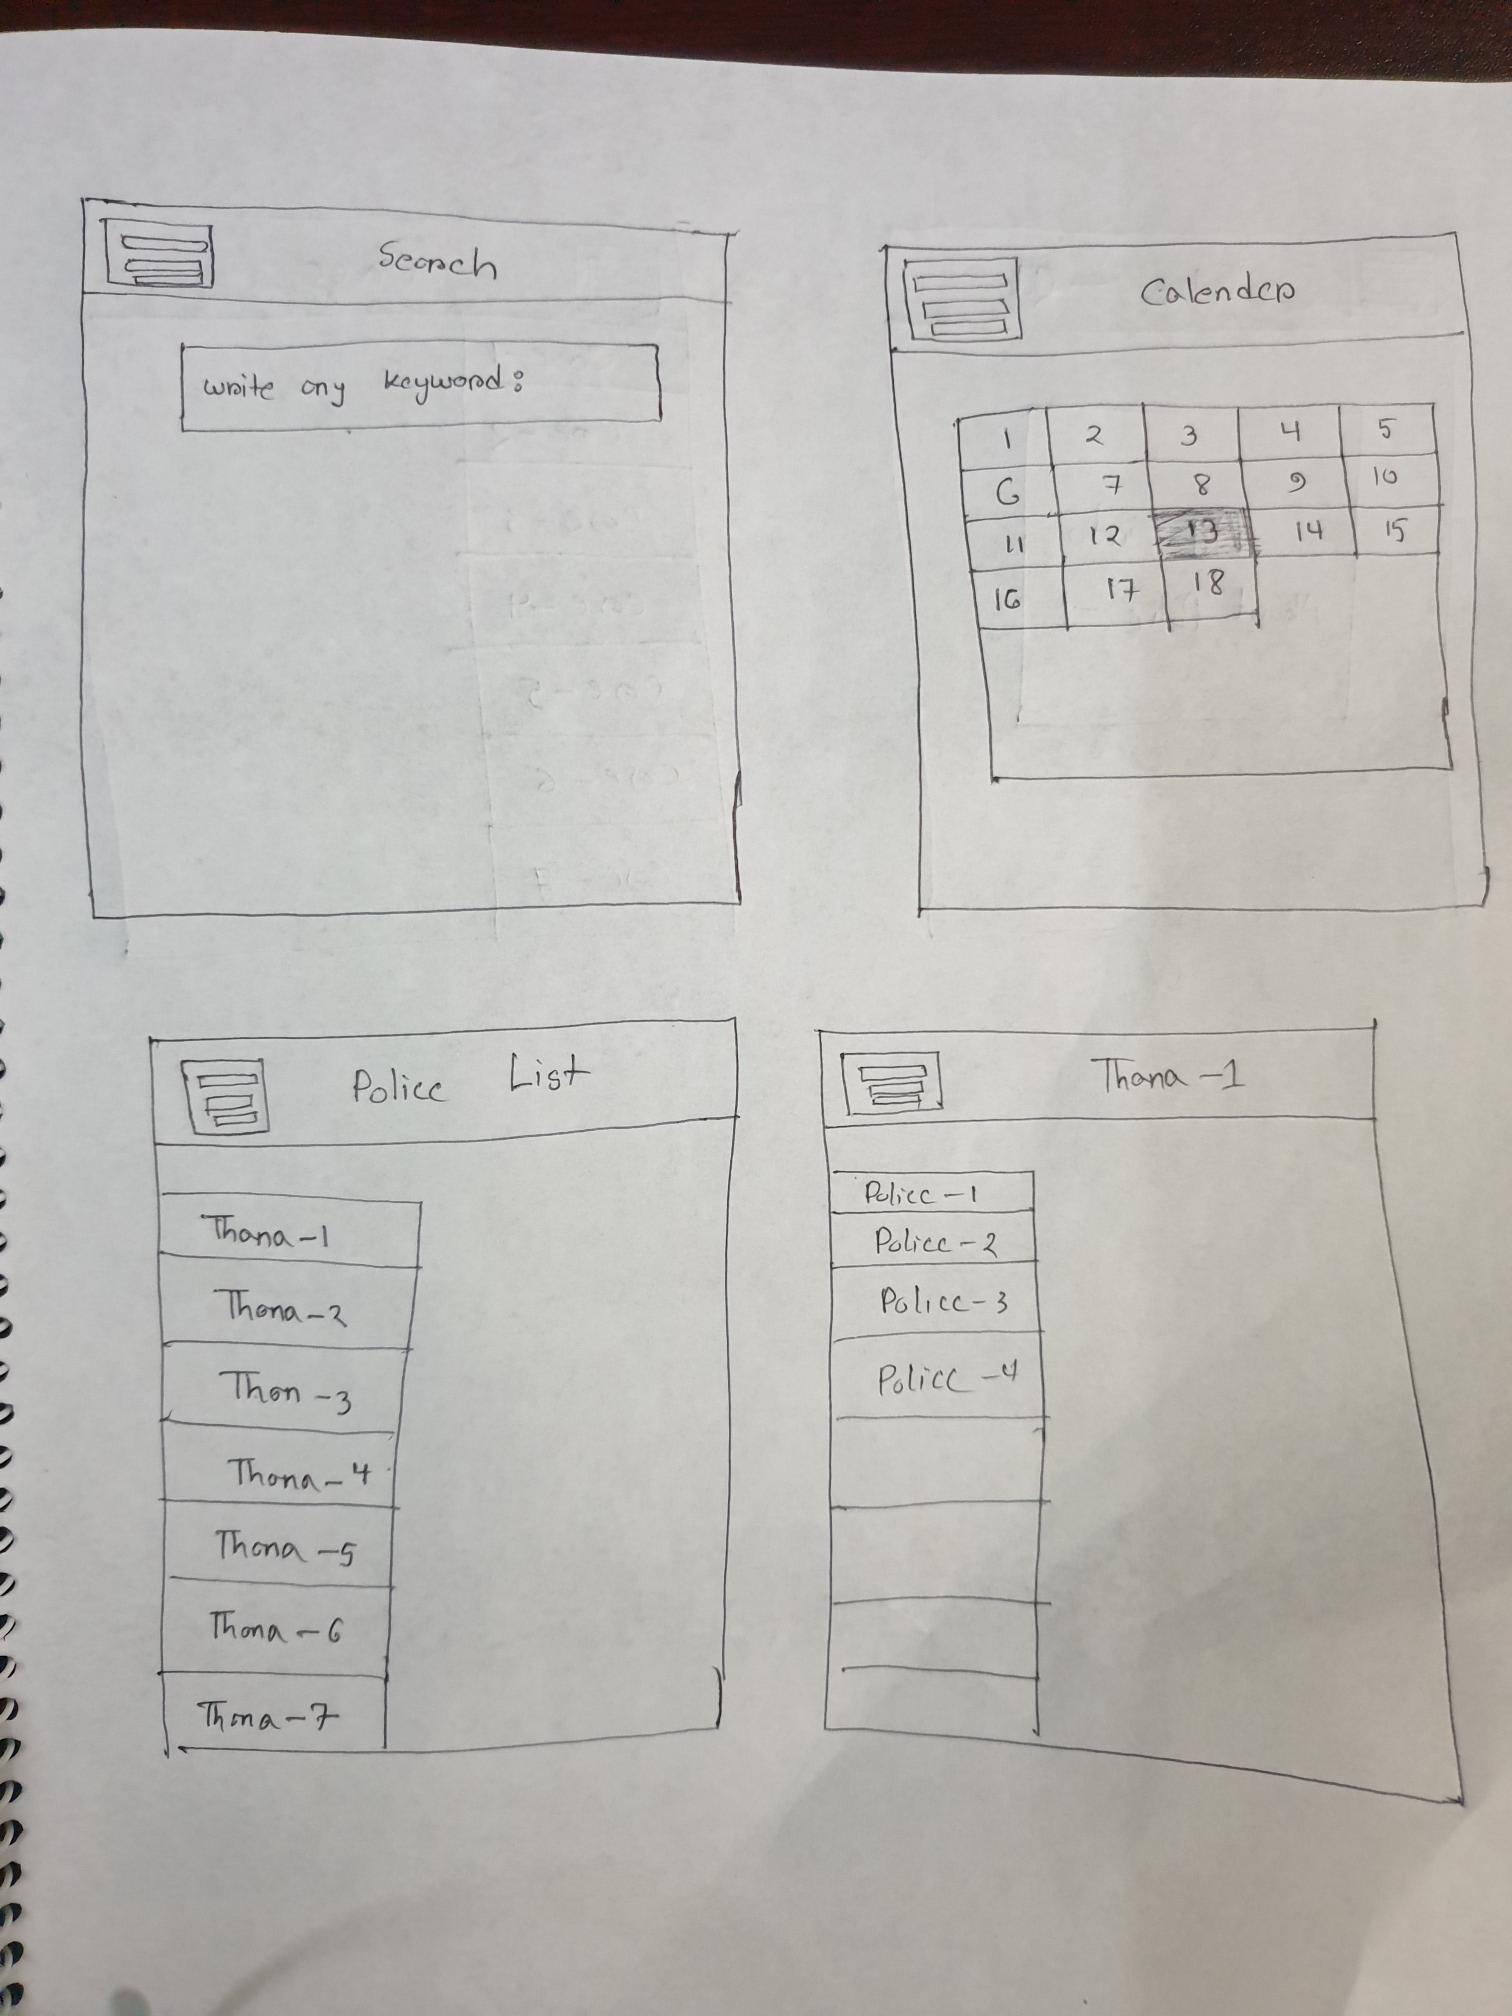 Search
write any keyword:
Calender
1 2 3 4 5
6 7 8 9 10
11 12 13 14 15
16 17 18
Police List
Thana-1
Thana-2
Than-3
Thana-4
Thana-5
Thana-6
Thana-7
Thana-1
Police-1
Police-2
Police-3
Police-4